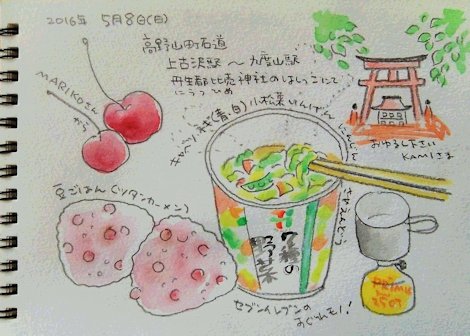 2016年 5月8日(日)
高野山町石道
上古沢駅 〜 九度山駅
丹生都比売神社のはしっこにて
にうつひめ
MARIKOさん
から
キャベツ ネギ(青、白) 小松菜 いんげん にんじん
きぬさやえんどう
おゆるし下さい
KAMIさま
豆ごはん(ツタンカーメン)
7種の
野菜
セブンイレブンの
すぐれモノ!
PRIMUS